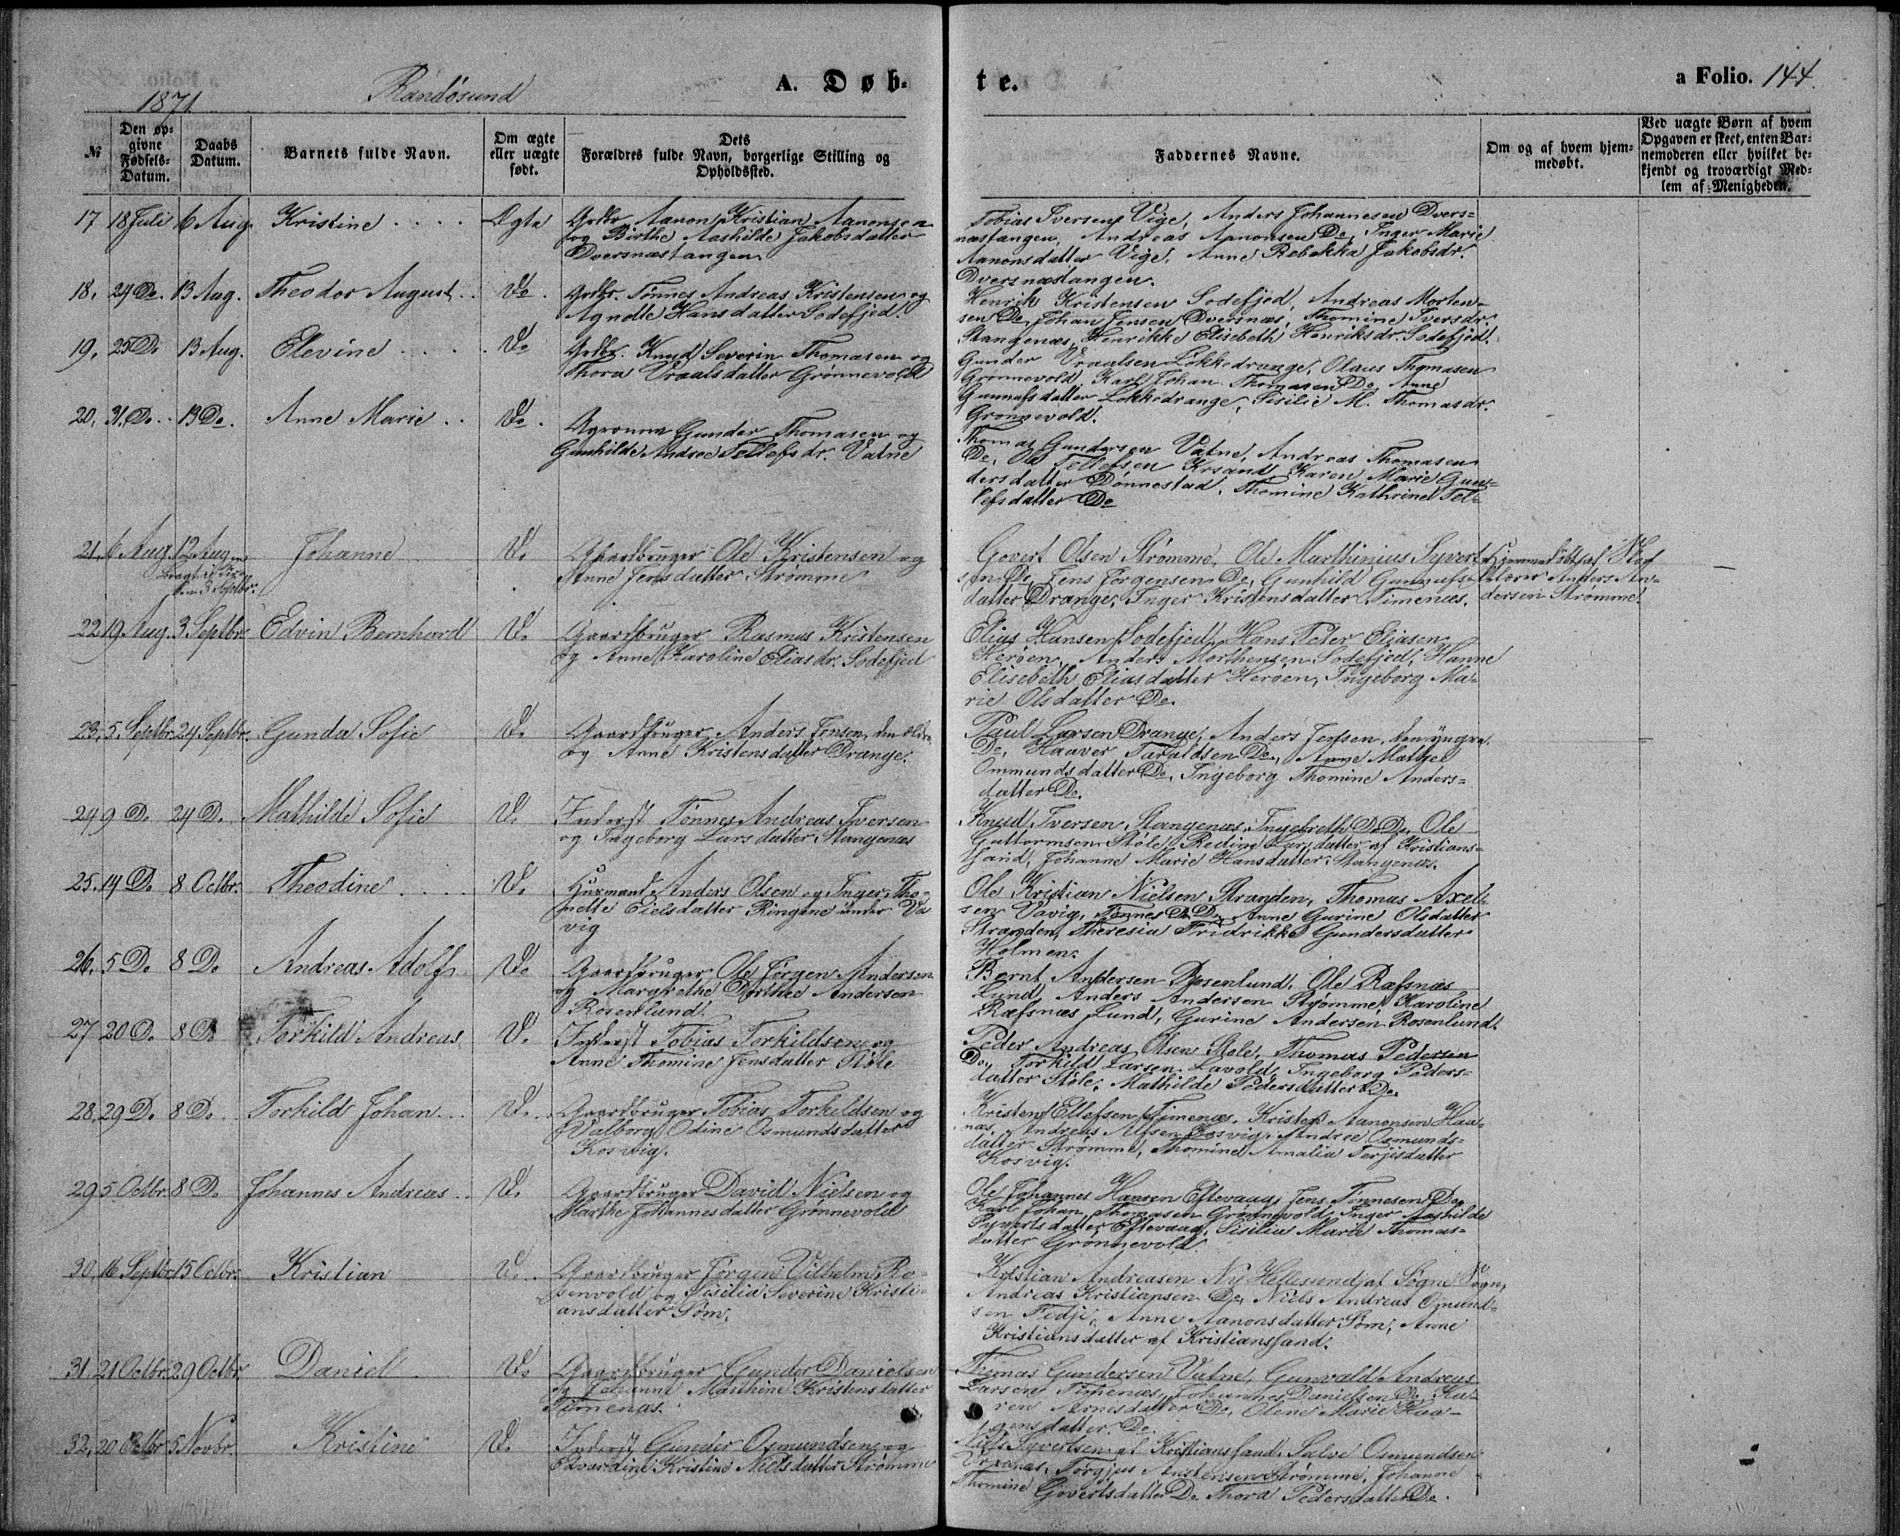 1871 Randøsund A. Døb-
te. a Folio. 144.
№ Den op- givne Fødsels- Datum. Daabs Datum. Barnets fulde Navn. Om ægte eller uægte født. Dets Forældres fulde Navn, borgerlige Stilling og Opholdssted.
Faddernes Navne. Om og af hvem hjem- medøbt. Ved uægte Børn af hvem Opgaven er skeet, enten Bar- nemoderen eller hvilket be- kjendt og troværdigt Med- lem af Menigheden.
17 18 Juli 6 Aug. Kristine Ægte Grdbr. Aanon Kristian Aanonsen
og Birthe Mathilde Jakobsdatter
Dversnæstangen.
Tobias Iversen Vige, Anders Johannesen Dvers-
næstangen, Andreas Aanonsen Do, Inger Marie
Aanonsdatter Vige. Anne Rebekka Jakobsdr.
Dversnæstangen.
18. 24 Do. 13 Aug. Theodor August Do. Grdbr. Tønnes Andreas Kristensen og
Agnette Hansdatter Sodefjed.
Henrik Kristensen Sodefjed, Andreas Morten-
sen Do, Johan Jensen Dversnæs, Thomine Iversdr.
Stangenæs, Henrikke Elisebeth Henriksdr. Sodefjed.
19. 25 Do 13 Aug. Elevine Do Grdbr. Knud Severin Thomasen og
Thora Vraalsdatter Grønnevold
Gunder Vraalsen Løkkedrange, Olaus Thomasen
Grønnevold, Karl Johan Thomasen Do, Anne
Gunnufsdatter Løkkedrange, Sisilie M. Thomasdr.
Grønnevold.
20. 31. Do. 13 Do. Anne Marie Do. Agronom Gunder Thomasen og
Gunhilde Andrea Tellefsdr. Vatne
Thomas Gundersen Vatne, Andreas Thomasen
Do, Ole Tellefsen Krsand, Karen Marie Gun-
dersdatter Dønnestad, Thomine Kathrine Tel-
lefsdatter Do
21. 6 Aug. 12 Aug Johanne Do Gaardbruger Ole Kristensen og
Anne Jensdatter Strømme
Govert Olsen Strømme, Ole Marthinius Syvert-
sen Do, Jens Jørgensen Do, Gunhild Gunnufs-
datter Drange, Inger Kristensdatter Timenæs.
Hjemmedøbt af Skol
lærer Anders An-
dersen Strømme.
22 19 Aug. 3 Septbr. Edvin Bernhard Do Gaardbruger Rasmus Kristensen
og Anne Karoline Eliasdr. Sodefjed
Elias Hansen Sodefjed, Hans Peter Eliasen
Herøen, Anders Morthensen Sodefjed, Hanne
Elisebeth Eliasdatter Herøen, Ingeborg Ma-
rie Olsdatter Do.
23. 5. Septbr. 24 Septbr. Gunda Sofie Do Gaardbruger Anders Jensen, den ældre,
og Anne Kristensdatter Drange.
Paul Larsen Drange, Anders Jensen, den yngre,
Do, Haaver Taraldsen Do, Anne Mathea
Ommundsdatter Do, Ingeborg Thomine Anders-
datter Do.
24 9 Do. 24 Do. Mathilde Sofie Do Inderst Tønnes Andreas Iversen
og Ingeborg Larsdatter Stangenæs
Knud Iversen Stangenæs, Ingebreth Do Do, Ole
Guttormsen Støle, Redine Larsdatter af Kristians-
sand, Johanne Marie Hansdatter Stangenæs.
25. 14 Do 8 Octbr. Theodine Do Husmand Anders Olsen og Inger Tho-
nette Eielsdatter Ringene under Va
vig
Ole Kristian Nielsen Stranden, Thomas Axel-
sen Vavig, Tønnes Do Do, Anne Gurine Olsdatter
Stranden, Theresia Fridrikke Gundersdatter
Holmen.
26. 5 Do 8 Do Andreas Adolf Do Gaardbruger Ole Jørgen Andersen
og Margrethe Dorthea Andersen
Rosenlund.
Bernt Andersen Rosenlund, Ole Ræfsnæs
Lund, Anders Andersen Strømme, Karoline
Ræfsnæs Lund, Gurine Andersen Rosenlund.
27 20 Do. 8 Do Torkild Andreas Do Inderst Tobias Torkildsen og
Anne Thomine Jensdatter Støle
Peder Andreas Olsen Støle, Thomas Pedersen
Do, Torkild Larsen Lavold, Ingeborg Peders-
datter Støle, Mathilde Pedersdatter Do.
28. 29 Do 8 Do. Torkild Johan Do. Gaardbruger Tobias Torkildsen og
Valborg Odine Osmundsdatter
Kosvig.
Kristen Ellefsen Timenæs, Kristen Aanonsen Haa-
næs, Andreas Alfsen Kosvig, Andrea Osmunds-
datter Strømme, Thomine Amalia Terjisdatter
Kosvig.
29 5 Octbr. 8 Do. Johannes Andreas Do Gaardbruger David Nielsen og
Marthe Johannesdatter Grønnevold
Ole Johannes Hansen Eftevaag, Jens Tønnesen Do,
Karl Johan Thomasen Grønnevold, Inger Mathilde
Syvertsdatter Eftevaag, Sisilia Marie Thomas-
datter Grønnevold.
30. 16 Septbr. 15 Octbr. Kristian Do Gaardbruger Jørgen Vilhelm Ro-
senvold og Sisilia Severine Kristi-
ansdatter Søm.
Kristian Andreasen Ny Hellesund af Søgne Sogn,
Andreas Kristiansen Do, Niels Andreas Osmund-
sen Fedje, Anne Aanonsdatter Søm, Anne
Kristiansdatter af Kristianssand.
31. 21 Octbr. 29 Octbr. Daniel Do Gaardbruger Gunder Danielsen
og Johanne Marthine Kristensdatter
Timenæs.
Thomas Gundersen Vatne, Gunvald Andreas
Larsen Timenæs, Johannes Danielsen Do, Ka-
ren Arnesdatter Do, Olene Marie Haa-
gensdatter Do.
32. 20 Octbr 5 Novbr. Kristine Do Inderst Gunder Osmundsen og
Edvardine Kristine Nielsdatter Strømme
Niels Syvertsen af Kristianssand, Salve Osmundsen
Torgjus Anstensen Strømme, Johanne
Thomine Govertsdatter Do Thora Pedersdatter Do.